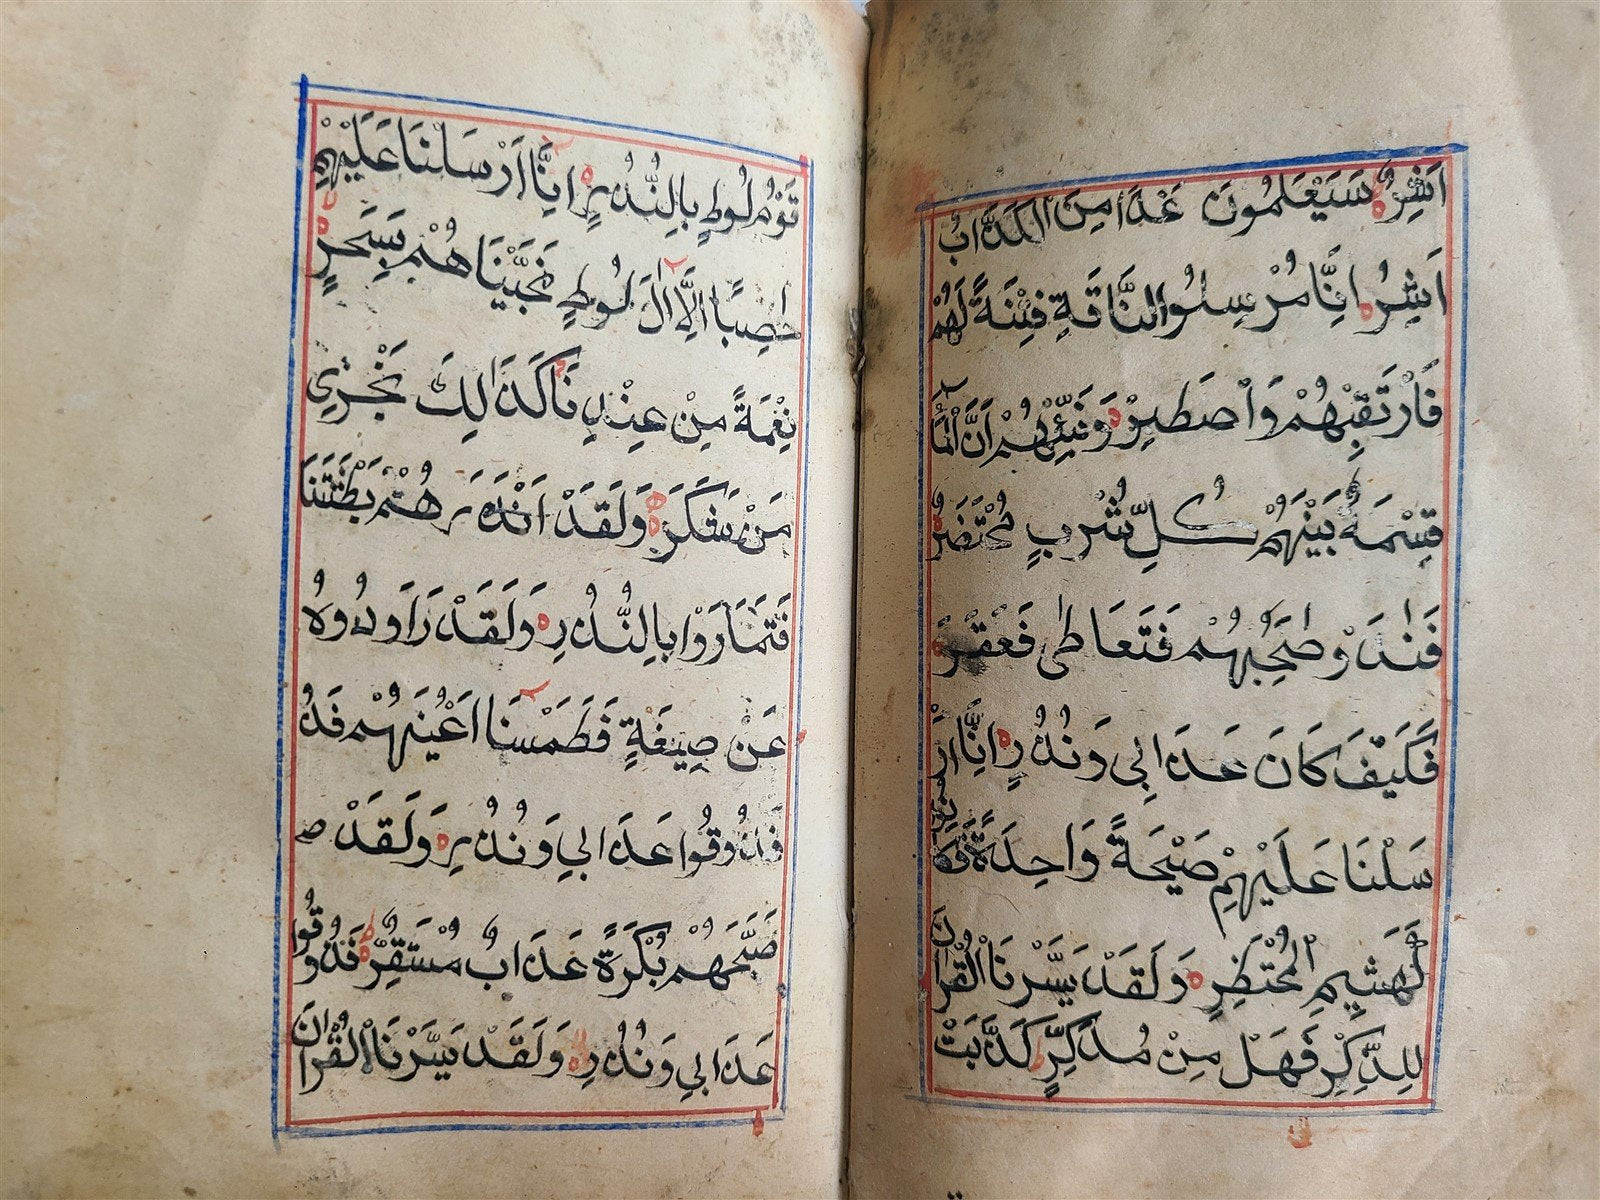 اَشِرٌ سَيَعْلَمُونَ غَدًا مَنِ الْكَذَّابُ
اَشِرُ اِنَّا مُرْسِلُوا النَّاقَةِ فِتْنَةً لَهُمْ
فَارْتَقِبْهُمْ وَاصْطَبِرْ وَنَبِّئْهُمْ اَنَّ الْمَآءَ
قِسْمَةٌ بَيْنَهُمْ كُلُّ شُرْبٍ مُحْتَضَرٌ
فَنَادَوْ صَاحِبَهُمْ فَتَعَاطٰى فَعَقَرَ
فَكَيْفَ كَانَ عَذَابِى وَنُذُرِ اِنَّا اَرْ
سَلْنَا عَلَيْهِمْ صَيْحَةً وَاحِدَةً فَكَانُوا
كَهَشِيمِ الْمُحْتَظِرِ وَلَقَدْ يَسَّرْنَا الْقُرْاٰنَ
لِلذِّكْرِ فَهَلْ مِنْ مُدَّكِرٍ كَذَّبَتْ
قَوْمُ لُوطٍ بِالنُّذُرِ اِنَّا اَرْسَلْنَا عَلَيْهِمْ
حَاصِبًا اِلَّا اٰلَ لُوطٍ نَجَّيْنَاهُمْ بِسَحَرٍ
نِعْمَةً مِنْ عِنْدِنَا كَذَالِكَ نَجْزِى
مَنْ شَكَرَ وَلَقَدْ اَنْذَرَهُمْ بَطْشَتَنَا
فَتَمَارَوْا بِالنُّذُرِ وَلَقَدْ رَاوَدُوهُ
عَنْ ضَيْفِهِ فَطَمَسْنَا اَعْيُنَهُمْ فَذُ
فَذُوقُوا عَذَابِي وَنُذُرِ وَلَقَدْ صـ
صَبَّحَهُمْ بُكْرَةً عَذَابٌ مُسْتَقِرٌّ فَذُوقُوا
عَذَابِي وَنُذُرِ وَلَقَدْ يَسَّرْنَا الْقُرْاٰنَ